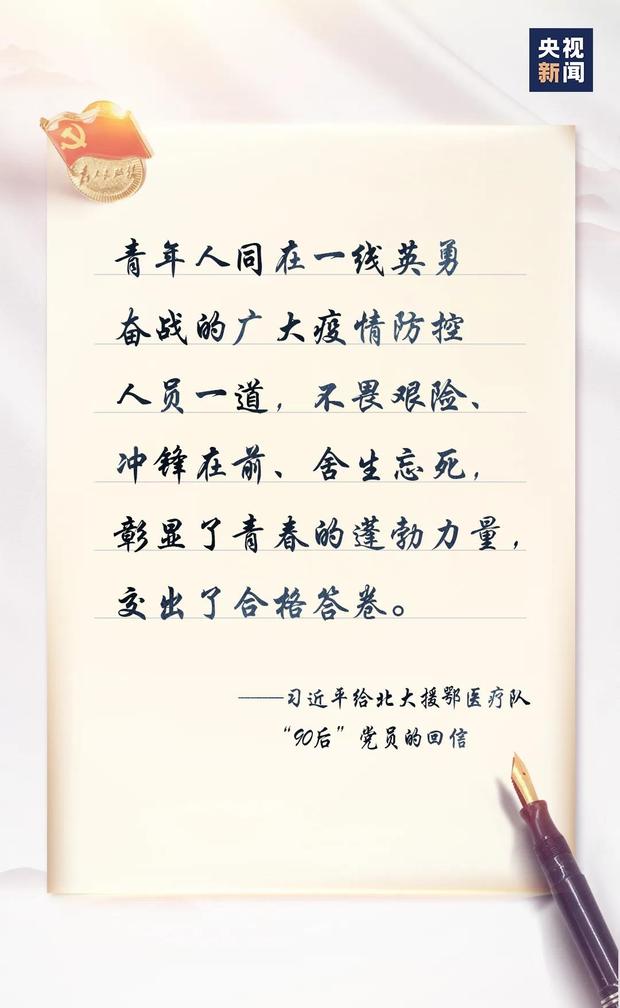 央视
新闻
为人民服务
青年人同在一线英勇
奋战的广大疫情防控
人员一道，不畏艰险、
冲锋在前、舍生忘死，
彰显了青春的蓬勃力量，
交出了合格答卷。
——习近平给北大援鄂医疗队
“90后”党员的回信